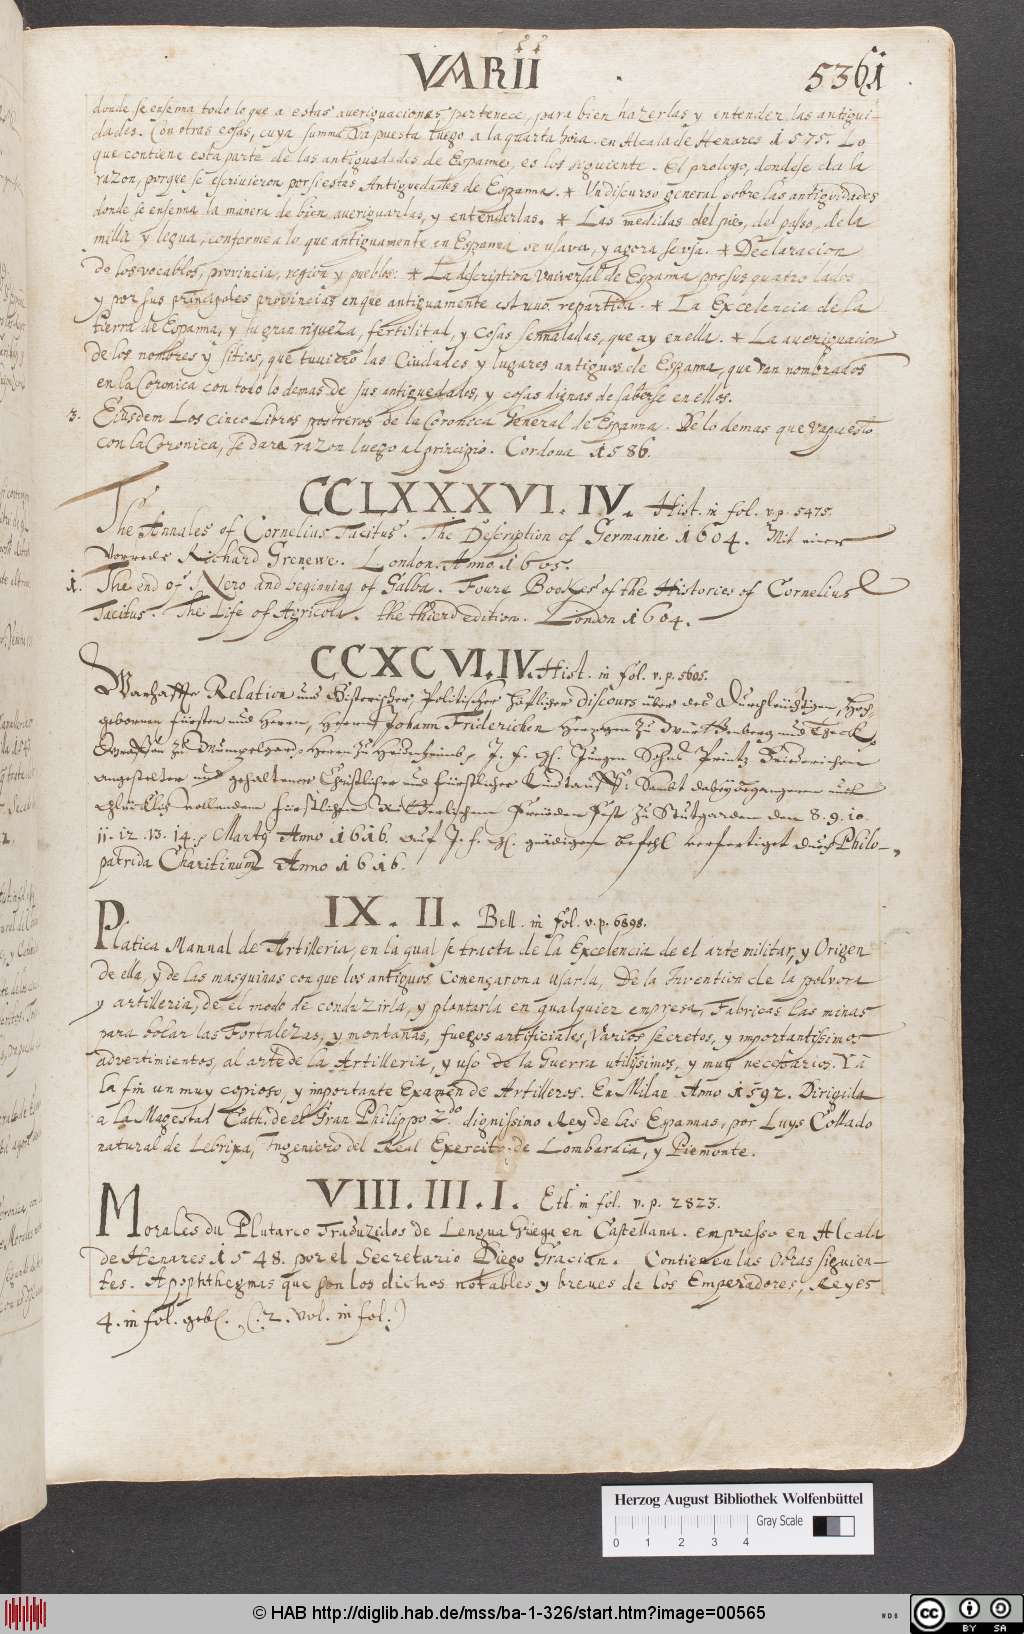 VARII
5361
donde se ensenna todo lo que a estas aueriguaciones pertenece, para bien hazerlas y entender las antigui-
dades. Con otras cosas, cuya summa va puesta luego a la quarta hoia. en Alcala de Henares 1575. Lo
que contiene esta parte de las antiguedades de Espanna, es lo siguiente. El prologo, donde se da la
razon, porque se escriuieron por si estas Antiguedades de Espanna. * Un discurso general sobre las antiguidades
donde se ensenna la manera de bien aueriguarlas, y entenderlas. * Las medidas del pie, del passo, de la
milla y legua, conforme a lo que antiguamente en Espanna se usaua, y agora se usa. * Declaracion
de los vocablos, prouincia, region y pueblos. * La description vniuersal de Espanna por sus quatro lados
y por sus principales prouincias en que antiguamente estuuo repartida. * La Excelencia de la
tierra de Espanna, y su gran riqueza, fertilital, y cosas sennaladas, que ay en ella. * La aueriguacion
de los nombres y sitios, que tuuierõ las Ciudades y lugares antiguos de Espanna, que van nombrados
en la Coronica con todo lo demas de sus antiguedades, y cosas dignas de saberse en ellos.
3. Eiusdem Los cinco Libros postreros de la Coronica General de Espanna. De lo demas que va puesto
con la Coronica, se dara razon luego al principio. Cordoua 1586.
CCLXXXVI. IV. Hist. in fol. v. p. 5475.
The Annales of Cornelius Tacitus. The Description of Germanie 1604. Mit einer
Vorrede Richard Grenewe. London. Anno 1605.
1. The end of Nero and beginning of Galba. Foure Bookes of the Histories of Cornelius
Tacitus. The Life of Agricola. the third edition. London 1604.
CCXCVI. IV. Hist. in fol. v. p. 5605.
Warhaffte Relation und Historischer, Politischer höfflicher discours über des Durchleüchtigen, Hoch-
gebornen fürsten und Herrn, Herrn Johann Friderichen Hertzogen zu Würtemberg und Theck,
Graffen zu Mümpelgart, Herrn zu Heidenheimb, J. F. G. Jungen Sohns Printz Friderichen
angestelter und gehaltener Christlicher und fürstlicher Kindtauff: Sambt dabey gegangenem und
glücklich vollendem fürstlichen Ritterlichem Freüden Fest zu Stutgarden den 8. 9. 10.
11. 12. 13. 14. Martÿ Anno 1616. auf J. F. G. gnädigen befehl verfertiget durch Philo-
patrida Charitinum Anno 1616.
IX. II. Bell. in fol. v. p. 6898.
Platica Manual de Artilleria, en la qual se tracta de la Excelencia de el arte militar, y Origen
de ella, y de las maquinas con que los antiguos Començaron a usarla, De la Inventiõ de la polvora
y artilleria, de el modo de conduzirla, y plantarla en qualquier empresa, Fabricas las minas
para bolar las Fortalezas, y montañas, fuegos artificiales, Varios secretos, y importantissimos
advertimientos, al arte de la Artilleria, y uso de la Guerra utilissimos, y muy necessarios. Y a
la fin un muy copioso, y importante Examen de Artilleros. En Milan Anno 1592. Dirigida
a la Magestad Cath. de el Gran Philippo 2do. dignissimo Rey de las Espannas, por Luys Collado
natural de Lebrixa, Ingeniero del Real Exercito de Lombardia, y Piemonte.
VIII. III. I. Eth. in fol. v. p. 2823.
Morales du Plutarco Traduzidos de Lengua Griega en Castellana. empresso en Alcala
de Henares 1548. por el Secretario Diego Gracian. Contienen las Obras siguien-
tes. Apophthegmas que son los dichos notables y breues de los Emperadores, Reyes
4. in fol. geb. (: 2. vol. in fol.)
Herzog August Bibliothek Wolfenbüttel
Gray Scale
0 1 2 3 4
© HAB http://diglib.hab.de/mss/ba-1-326/start.htm?image=00565
WDB
cc BY SA